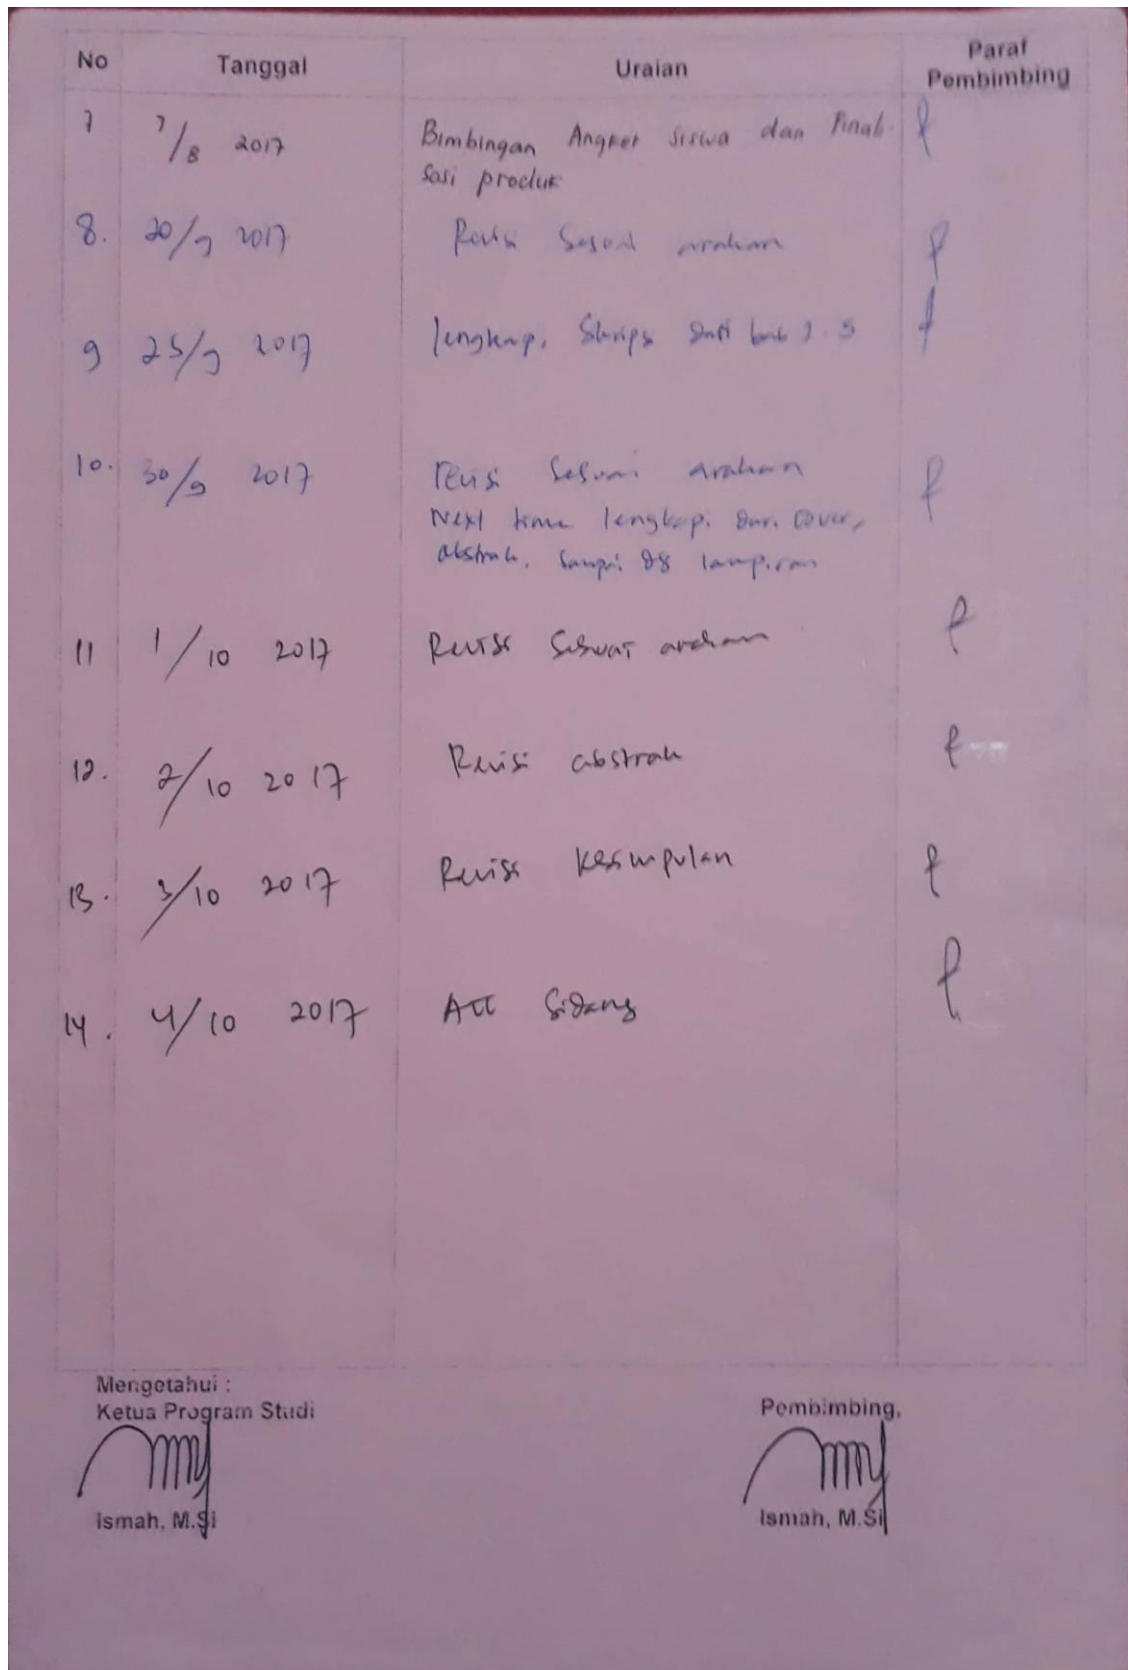 No Tanggal Uraian Paraf
Pembimbing
7 7/8 2017 Bimbingan Angket Siswa dan Finali
sasi produk
8. 20/9 2017 Revisi Sesuai arahan
9 25/9 2017 lengkapi Skripsi dari bab 1-5
10. 30/9 2017 revisi Sesuai arahan
Next time lengkapi dari cover,
abstrak, sampai lampiran
11 1/10 2017 Revisi Sesuai arahan
12. 2/10 2017 Revisi abstrak
13. 3/10 2017 Revisi Kesimpulan
14. 4/10 2017 Acc Sidang
Mengetahui :
Ketua Program Studi
Pembimbing,
Ismah, M.Si
Ismah, M.Si